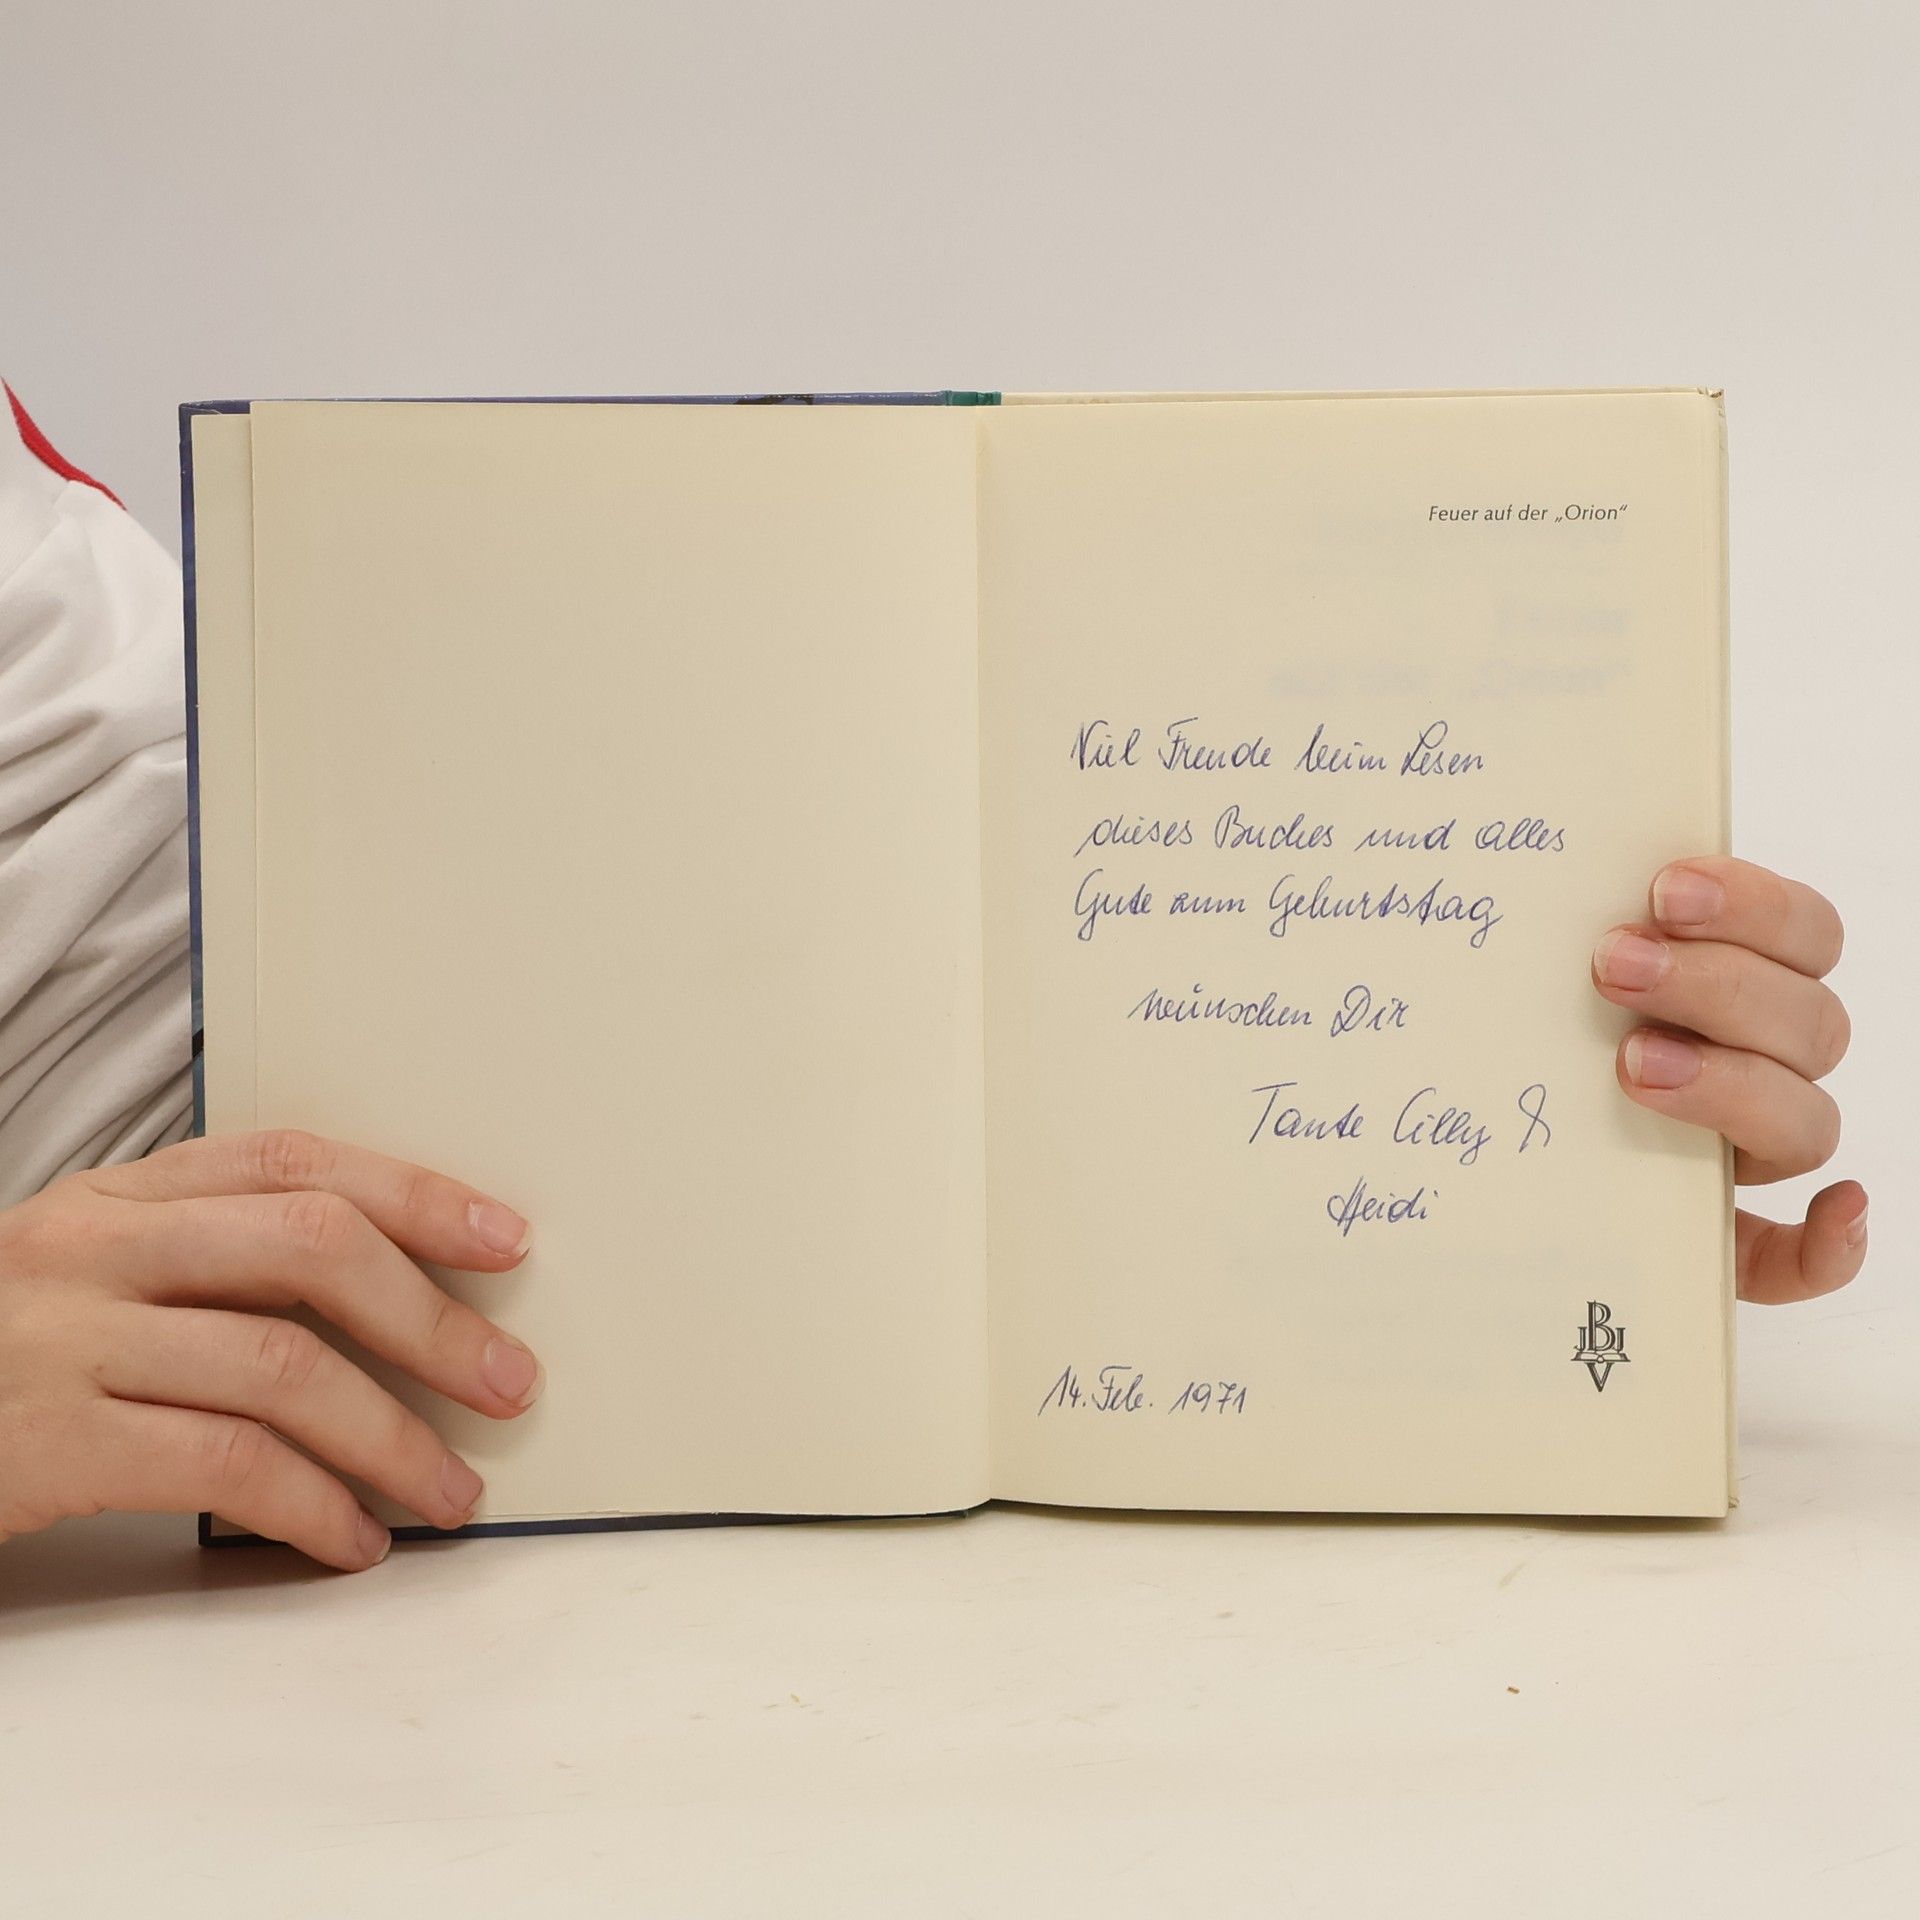 Feuer auf der „Orion“
Viel Freude beim Lesen
dieses Buches und alles
Gute zum Geburtstag
wünschen Dir
Tante Cilly &
Heidi
JBJ
V
14. Feb. 1971